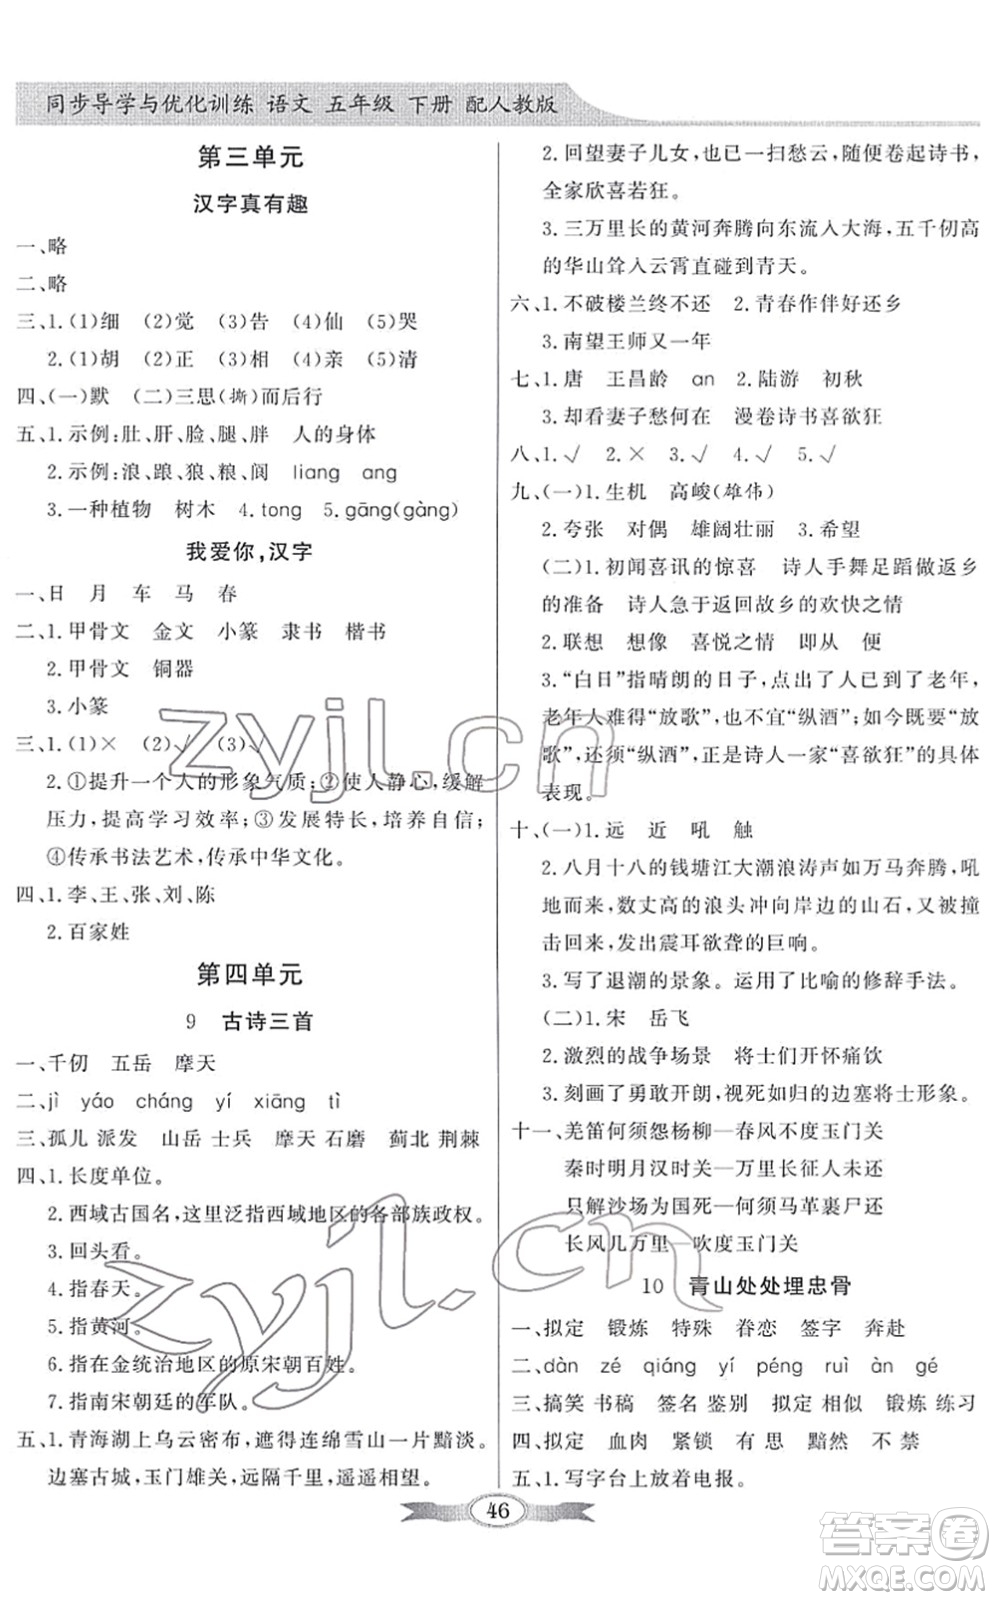 同步导学与优化训练 语文 五年级 下册 配人教版
第三单元
汉字真有趣
一、略
二、略
三、1.(1)细 (2)觉 (3)告 (4)仙 (5)哭
2.(1)胡 (2)正 (3)相 (4)亲 (5)清
四、(一)默 (二)三思(撕)而后行
五、1.示例:肚、肝、脸、腿、胖 人的身体
2.示例:浪、踉、狼、粮、阆 liang ang
3.一种植物 树木 4.tong 5.gāng(gàng)
我爱你,汉字
一、日 月 车 马 春
二、1.甲骨文 金文 小篆 隶书 楷书
2.甲骨文 铜器
3.小篆
三、1.(1)× (2)√ (3)√
2.①提升一个人的形象气质;②使人静心,缓解
压力,提高学习效率;③发展特长,培养自信;
④传承书法艺术,传承中华文化。
四、1.李、王、张、刘、陈
2.百家姓
第四单元
9 古诗三首
一、千仞 五岳 摩天
二、jì yáo cháng yí xiāng tì
三、孤儿 派发 山岳 士兵 摩天 石磨 蓟北 荆棘
四、1.长度单位。
2.西域古国名,这里泛指西域地区的各部族政权。
3.回头看。
4.指春天。
5.指黄河。
6.指在金统治地区的原宋朝百姓。
7.指南宋朝廷的军队。
五、1.青海湖上乌云密布,遮得连绵雪山一片黯淡。
边塞古城,玉门雄关,远隔千里,遥遥相望。
2.回望妻子儿女,也已一扫愁云,随便卷起诗书,
全家欣喜若狂。
3.三万里长的黄河奔腾向东流入大海,五千仞高
的华山耸入云霄直碰到青天。
六、1.不破楼兰终不还 2.青春作伴好还乡
3.南望王师又一年
七、1.唐 王昌龄 an 2.陆游 初秋
3.却看妻子愁何在 漫卷诗书喜欲狂
八、1.√ 2.× 3.√ 4.√ 5.√
九、(一)1.生机 高峻(雄伟)
2.夸张 对偶 雄阔壮丽 3.希望
(二)1.初闻喜讯的惊喜 诗人手舞足蹈做返乡
的准备 诗人急于返回故乡的欢快之情
2.联想 想像 喜悦之情 即从 便
3.“白日”指晴朗的日子,点出了人已到了老年,
老年人难得“放歌”,也不宜“纵酒”;如今既要“放
歌”,还须“纵酒”,正是诗人一家“喜欲狂”的具体
表现。
十、(一)1.远 近 吼 触
2.八月十八的钱塘江大潮浪涛声如万马奔腾,吼
地而来,数丈高的浪头冲向岸边的山石,又被撞
击而回,发出震耳欲聋的巨响。
3.写了退潮的景象。运用了比喻的修辞手法。
(二)1.宋 岳飞
2.激烈的战争场景 将士们开怀痛饮
3.刻画了勇敢开朗,视死如归的边塞将士形象。
十一、羌笛何须怨杨柳—春风不度玉门关
秦时明月汉时关—万里长征人未还
只解沙场为国死—何须马革裹尸还
长风几万里—吹度玉门关
10 青山处处埋忠骨
一、拟定 锻炼 特殊 眷恋 签字 奔赴
二、dàn zé qiáng yí péng ruì àn gé
三、搞笑 书稿 签名 鉴别 拟定 相似 锻炼 练习
四、拟定 血肉 紧锁 有思 黯然 不禁
五、1.写字台上放着电报。
46
zyjl.cn
zyjl.cn
答案圈
MXQE.COM